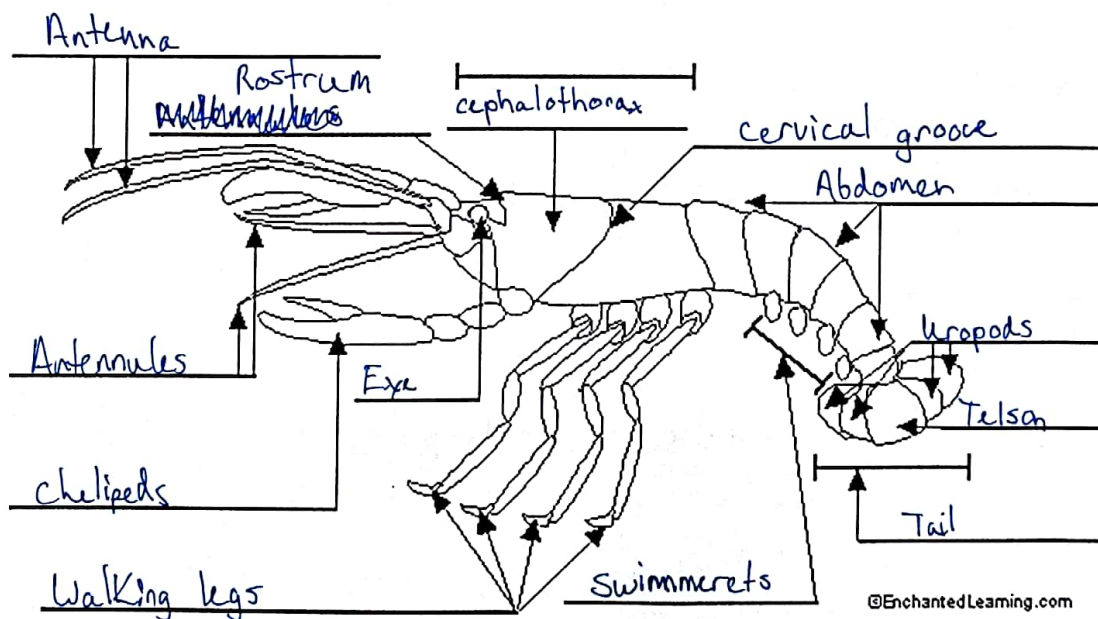 Antenna
Rostrum
cephalothorax
cervical groove
Abdomen
Uropods
Antennules
Eye
Telson
chelipeds
Tail
Walking legs
Swimmerets
©EnchantedLearning.com